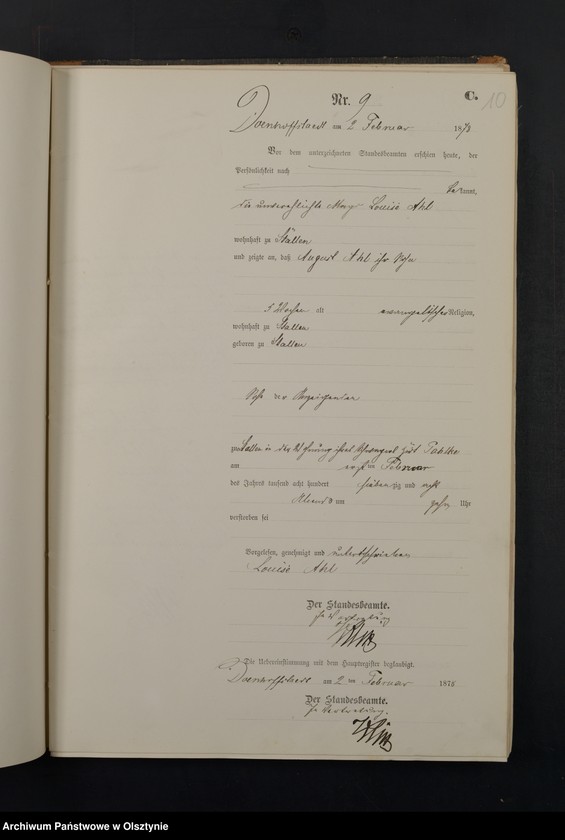 Nr. 9
C.
10
Doenhoffstaedt am 2 Februar 1878
Vor dem unterzeichneten Standesbeamten erschien heute, der
Persönlichkeit nach
kannt,
die unverehelichte Magd Louise Ahl
wohnhaft zu Stallen
und zeigte an, daß August Ahl ihr Sohn
5 Wochen alt evangelischer Religion,
wohnhaft zu Stallen
geboren zu Stallen
Sohn der Anzeigenden
zu Stallen in der Wohnung ihres
am ersten Februar
des Jahres tausend acht hundert siebenzig und acht
Abends um zehn Uhr
verstorben sei
Vorgelesen, genehmigt und unterschrieben
Louise Ahl
Der Standesbeamte.
In Vertretung
Die Uebereinstimmung mit dem Hauptregister beglaubigt.
Doenhoffstaedt am 2 ten Februar 1878
Der Standesbeamte.
In Vertretung.
Archiwum Państwowe w Olsztynie